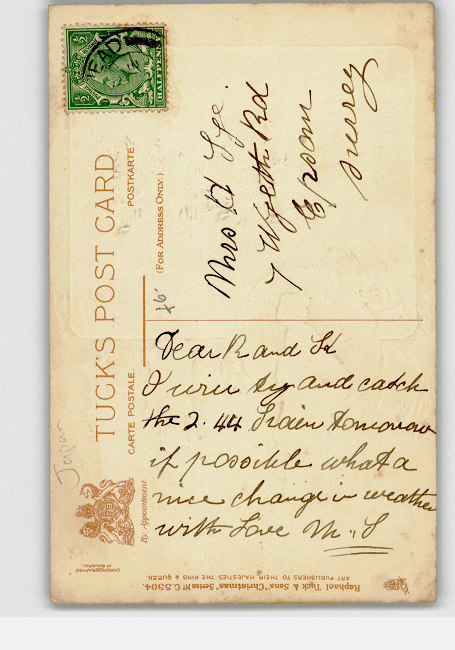 HALFPENNY
EAD
½ ½
TUCK'S POST CARD
CARTE POSTALE.
POSTKARTE.
(FOR ADDRESS ONLY.)
Mrs H Lye
7 Wyeths Rd
Epsom
Surrey
Dear R and H
I will try and catch
the 2.44 train tomorrow
if possible what a
nice change in weather
with Love M. L
Japan
By Appointment
CHROMOGRAPHED
IN BAVARIA
Raphael Tuck & Sons' "Christmas" Series No C. 5304.
ART PUBLISHERS TO THEIR MAJESTIES THE KING & QUEEN.